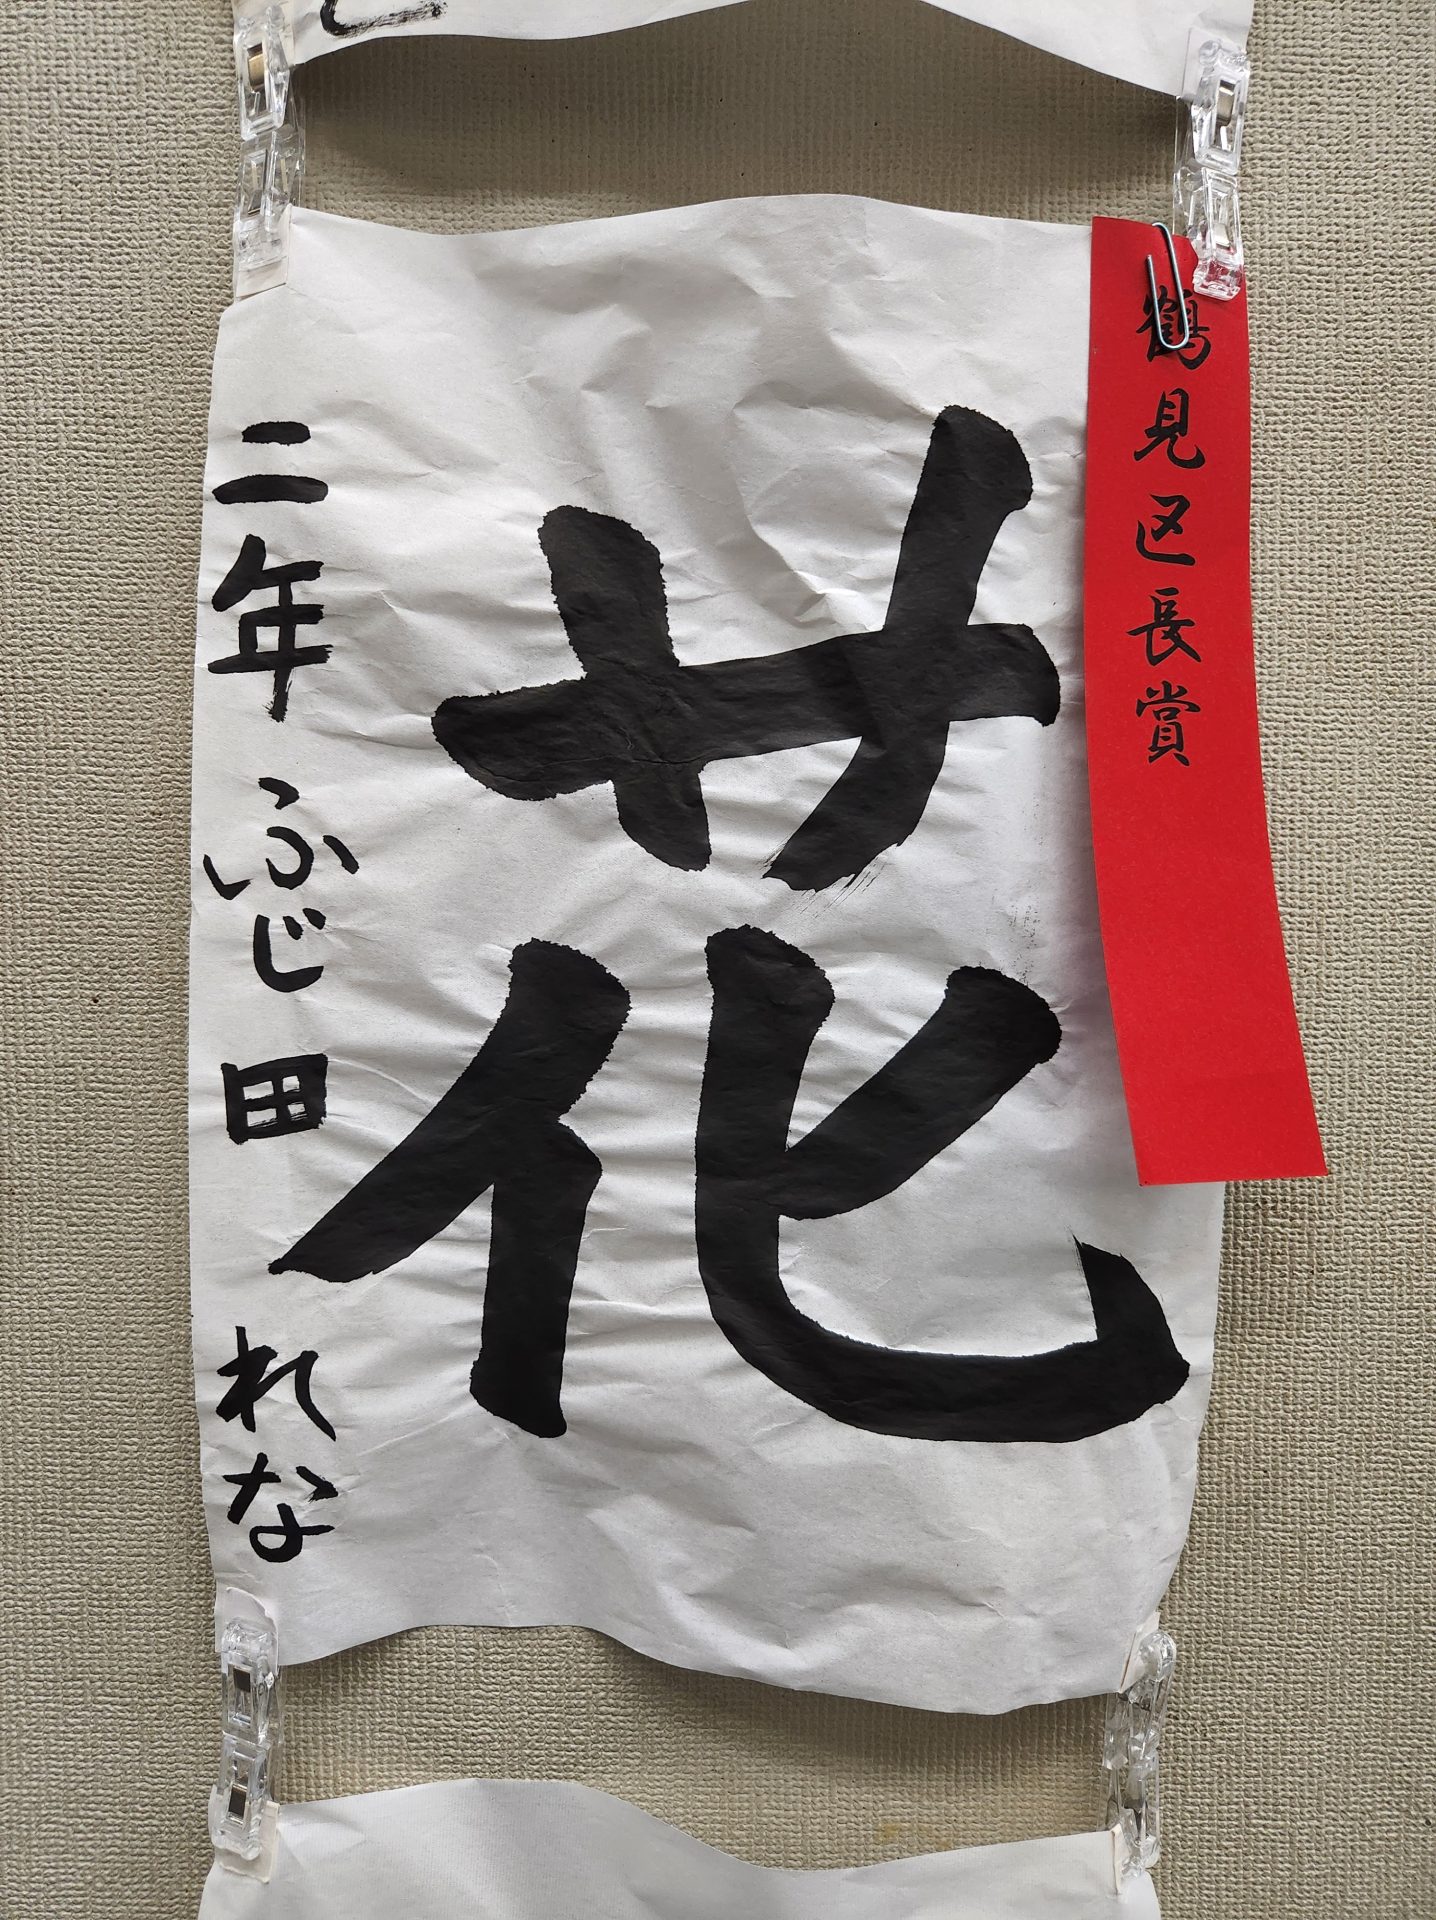 鶴見区長賞
花
二年 ふじ田 れな